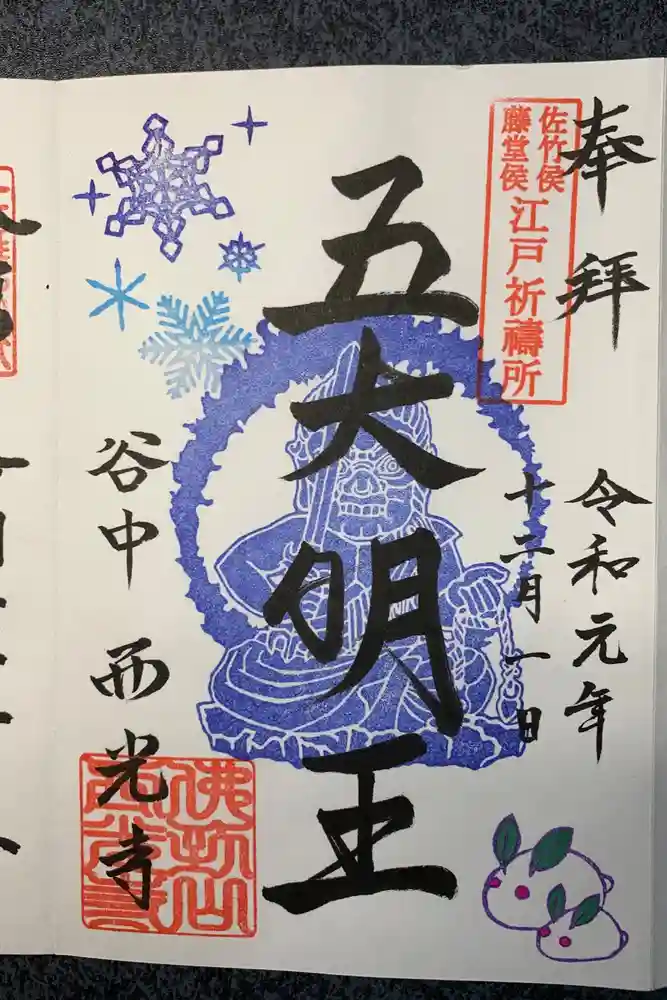 奉拝
佐竹侯
藤堂侯
江戸祈禱所
令和元年
十二月一日
五大明王
谷中 西光寺